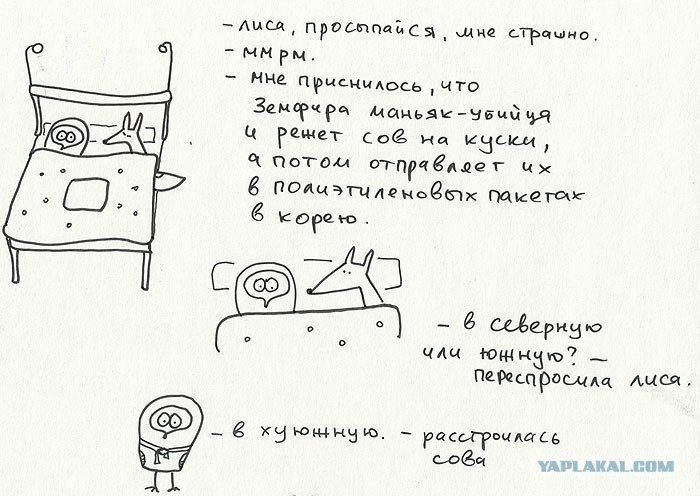 - лиса, просыпайся, мне страшно.
- ммрм.
- мне приснилось, что
Земфира маньяк-убийца
и режет сов на куски,
а потом отправляет их
в полиэтиленовых пакетах
в корею.
- в северную
или южную? -
переспросила лиса.
- в хуюжную. - расстроилась
сова
YAPLAKAL.COM